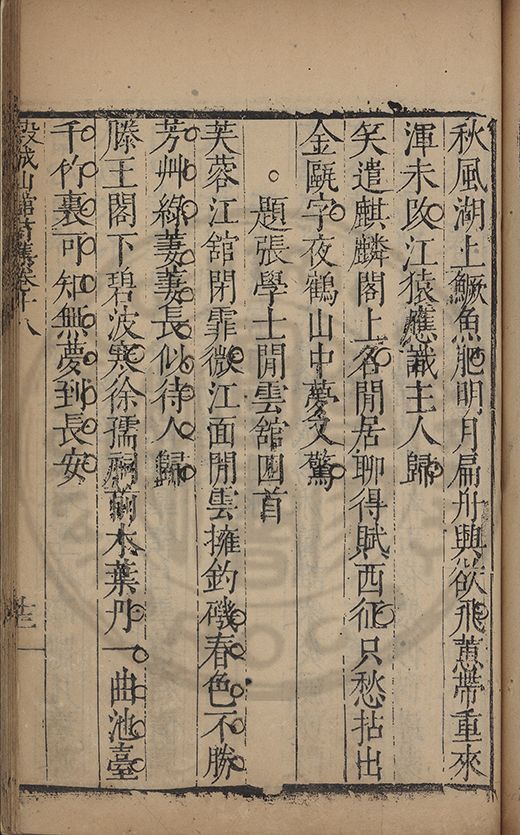 秋風湖上鱖魚肥明月扁舟興欲飛蕙帶重來
渾未改江猿應識主人歸
笑遣麒麟閣上名閒居聊得賦西征只愁拈出
金甌字夜鶴山中夢又驚
題張學士閒雲舘四首
芙蓉江舘閉霏微江面閒雲擁釣磯春色不勝
芳艸綠萋萋長似待人歸
滕王閣下碧波寒徐孺祠前木葉丹一曲池臺
千竹裏可知無夢到長安
穀城山館詩集卷十八